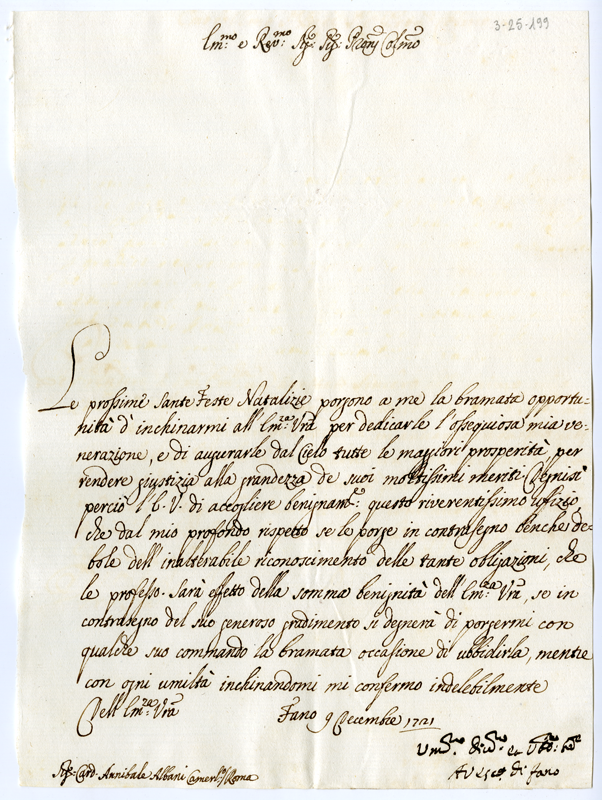 3-25-199
Em:mo e Rev:mo Sig: Sig: Pron Colmo
Le prossime Sante Feste Natalizie porgono a me la bramata opportu-
nità d'inchinarmi all'Em:za Vra per dedicarle l'ossequiosa mia ve-
nerazione, e di augurarle dal Cielo tutte le maggiori prosperità, per
rendere giustizia alla grandezza de suoi moltissimi meriti. Degnisi
perciò l'E. V. di accogliere benignam:te questo riverentissimo Uffizio,
che dal mio profondo rispetto se le porge in contrasegno benche de-
bole dell'inalterabile riconoscimento delle tante obligazioni, che
le professo. Sarà effetto della somma benignità dell'Em:za Vra, se in
contrasegno del suo generoso gradimento si degnerà di porgermi con
qualche suo commando la bramata occasione di ubbidirla, mentre
con ogni umiltà inchinandomi mi confermo indelebilmente
Dell'Em:za Vra Fano 9 Decembre 1721
Sig: Card: Annibale Albani Camerl: Roma
di Fano